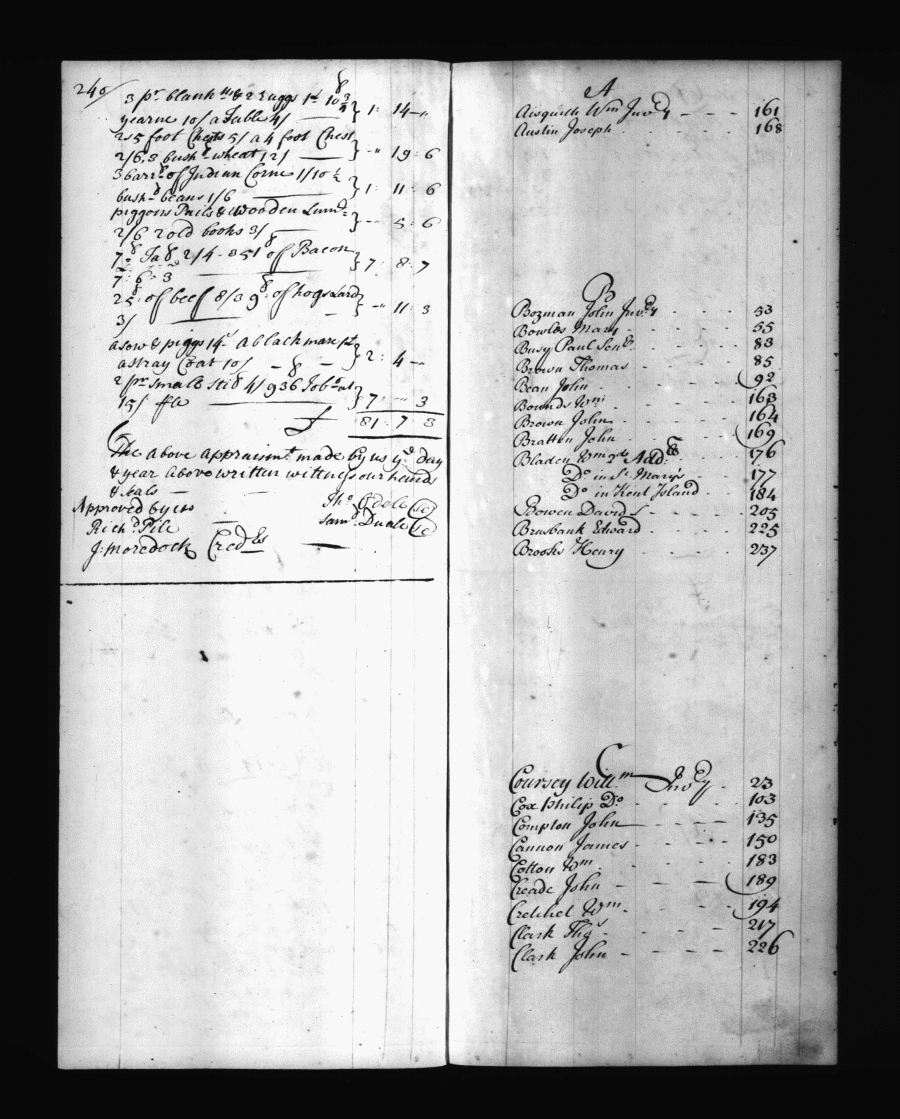 240/
3 pr. blankts & 2 ruggs 1£ 10 3
yearne 10/ a Table 4/ } 1: 14 -"
2 5 foot Chests 5/ a 4 foot Chest
2/6. 3 bushs wheat 12/ } -" 19: 6
3 barrs of Indian Corne 1/10 ½
bushd beans 1/6 } 1: 11: 6
piggons Pails & wooden Lumr
2/6 2 old books 3/ } -" 5: 6
of Bacon
7: 6: 3 } 7: 8: 7
25 of beef 8/3 9 of hogs Lard
3/ } -" 11: 3
a sow & piggs 14/ a black mare
a stray Coat 10/ } 2: 4 -"
2 pr small 4/ 936 Tobo at
15/ } 7: " 3
£ 81: 7: 3
The above appraismt made by us ye day
& year above written wittness our hands
& seals
Approved by us Tho: Edelen
Richd Pile Saml: Duale
J: Moredock Credrs
A
Aisquith Wm Invry - - - 161
Austin Joseph - - - 168
B
Bozman John Invry - - - 53
Bowlds Mary - - - 55
Busy Paul Senr - - - 83
Brown Thomas - - - 85
Bean John - - - 92
Bounds Wm - - - 163
Brown John - - - 164
Bratten John - - - 169
Bladen Wmqh Add - 176
Do in St Marys - 177
Do in Kent Island - 184
Bowen Davids - - - 205
Brusbank Edward - - - 225
Brooks Henry - - - 237
C
Coursey Willm Invry - 23
Cox Philip Do - - - 103
Compton John - - - 135
Cannon James - - - 150
Cotton Wm - - - 183
Creade John - - - 189
Cretchet Wm - - - 194
Clark Thos - - - 217
Clark John - - - 226